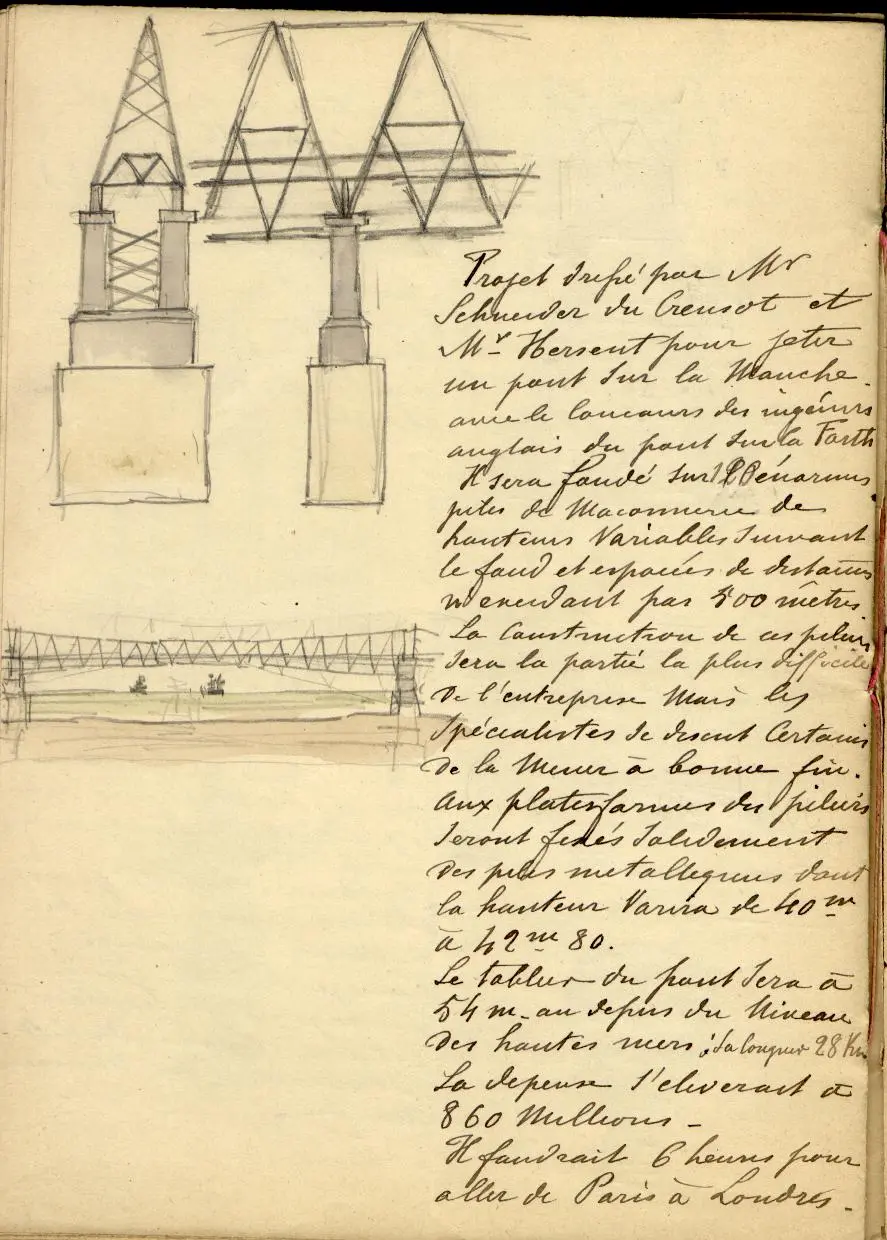 Projet dressé par Mr
Schneider du Creusot et
Mr Hersent pour jeter
un pont sur la Manche.
avec le concours des ingénieurs
anglais du pont sur la Forth
Il sera fondé sur énormes
piles de Maconnerie de
hauteurs Variables suivant
le fond et espacées de distances
n'excedant pas 500 mètres
La Construction de ces piliers
sera la partie la plus difficile
de l'entreprise Mais les
Spécialistes se disent Certains
de la Mener à bonne fin.
Aux platesformes des piliers
seront fixés Solidement
des piles metalliques dont
la hauteur Varira de 40 m
à 42 m 80.
Le tablier du pont Sera à
54 m. au dessus du Niveau
des hautes mers, sa longueur 28 Km
La depense s'eleverait à
860 Millions -
Il faudrait 6 heures pour
aller de Paris à Londres.